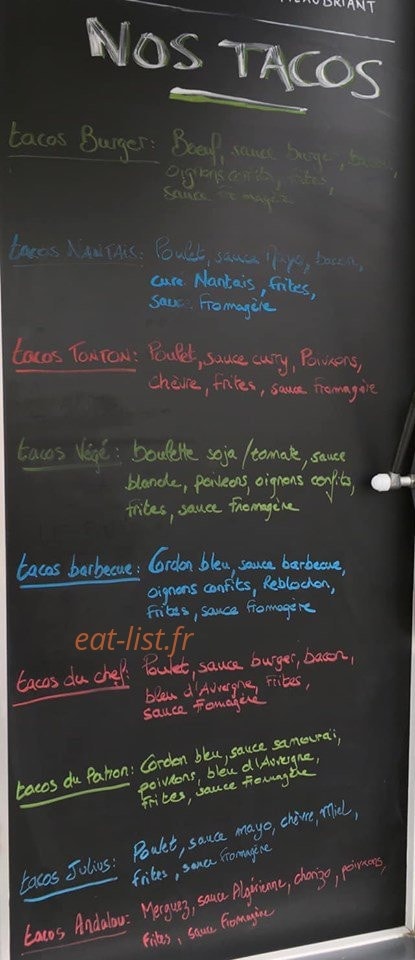 NOS TACOS
tacos Burger: Boeuf, sauce burger, bacon,
oignons confits, frites,
sauce fromagère
tacos NANTAIS: Poulet, sauce Mayo, bacon,
curé Nantais, frites,
sauce fromagère
tacos TONTON: Poulet, sauce curry, Poivrons,
chèvre, frites, sauce fromagère
tacos Végé: boulette soja/tomate, sauce
blanche, poivrons, oignons confits,
frites, sauce fromagère
tacos barbecue: Cordon bleu, sauce barbecue,
oignons confits, Reblochon,
frites, sauce fromagère
eat-list.fr
tacos du chef: Poulet, sauce burger, bacon,
bleu d'Auvergne, frites,
sauce fromagère
tacos du Patron: Cordon bleu, sauce samouraï,
poivrons, bleu d'Auvergne,
frites, sauce fromagère
tacos Julius: Poulet, sauce mayo, chèvre, miel,
frites, sauce fromagère
tacos Andalou: Merguez, sauce Algérienne, chorizo, poivrons,
frites, sauce fromagère